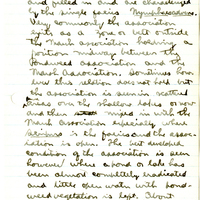 and filled in and are characterized
by the single species Nymphaea
Very commonly the association
exists as a zone or belt outside
the Marsh association holding a
position midway between the
Pondweed association and the
Marsh association, sometimes how-
ever this relation does not hold but
the association is seen in scattered
over the shallow lakes or now
and then mixed in with the
Marsh association especially where
is the facies and the assoc-
iation is open. The best developed
condition of the association is seen
however where a pond or lake has
been almost completely eradicated
and little open water with pond-
weed vegetation is left. About